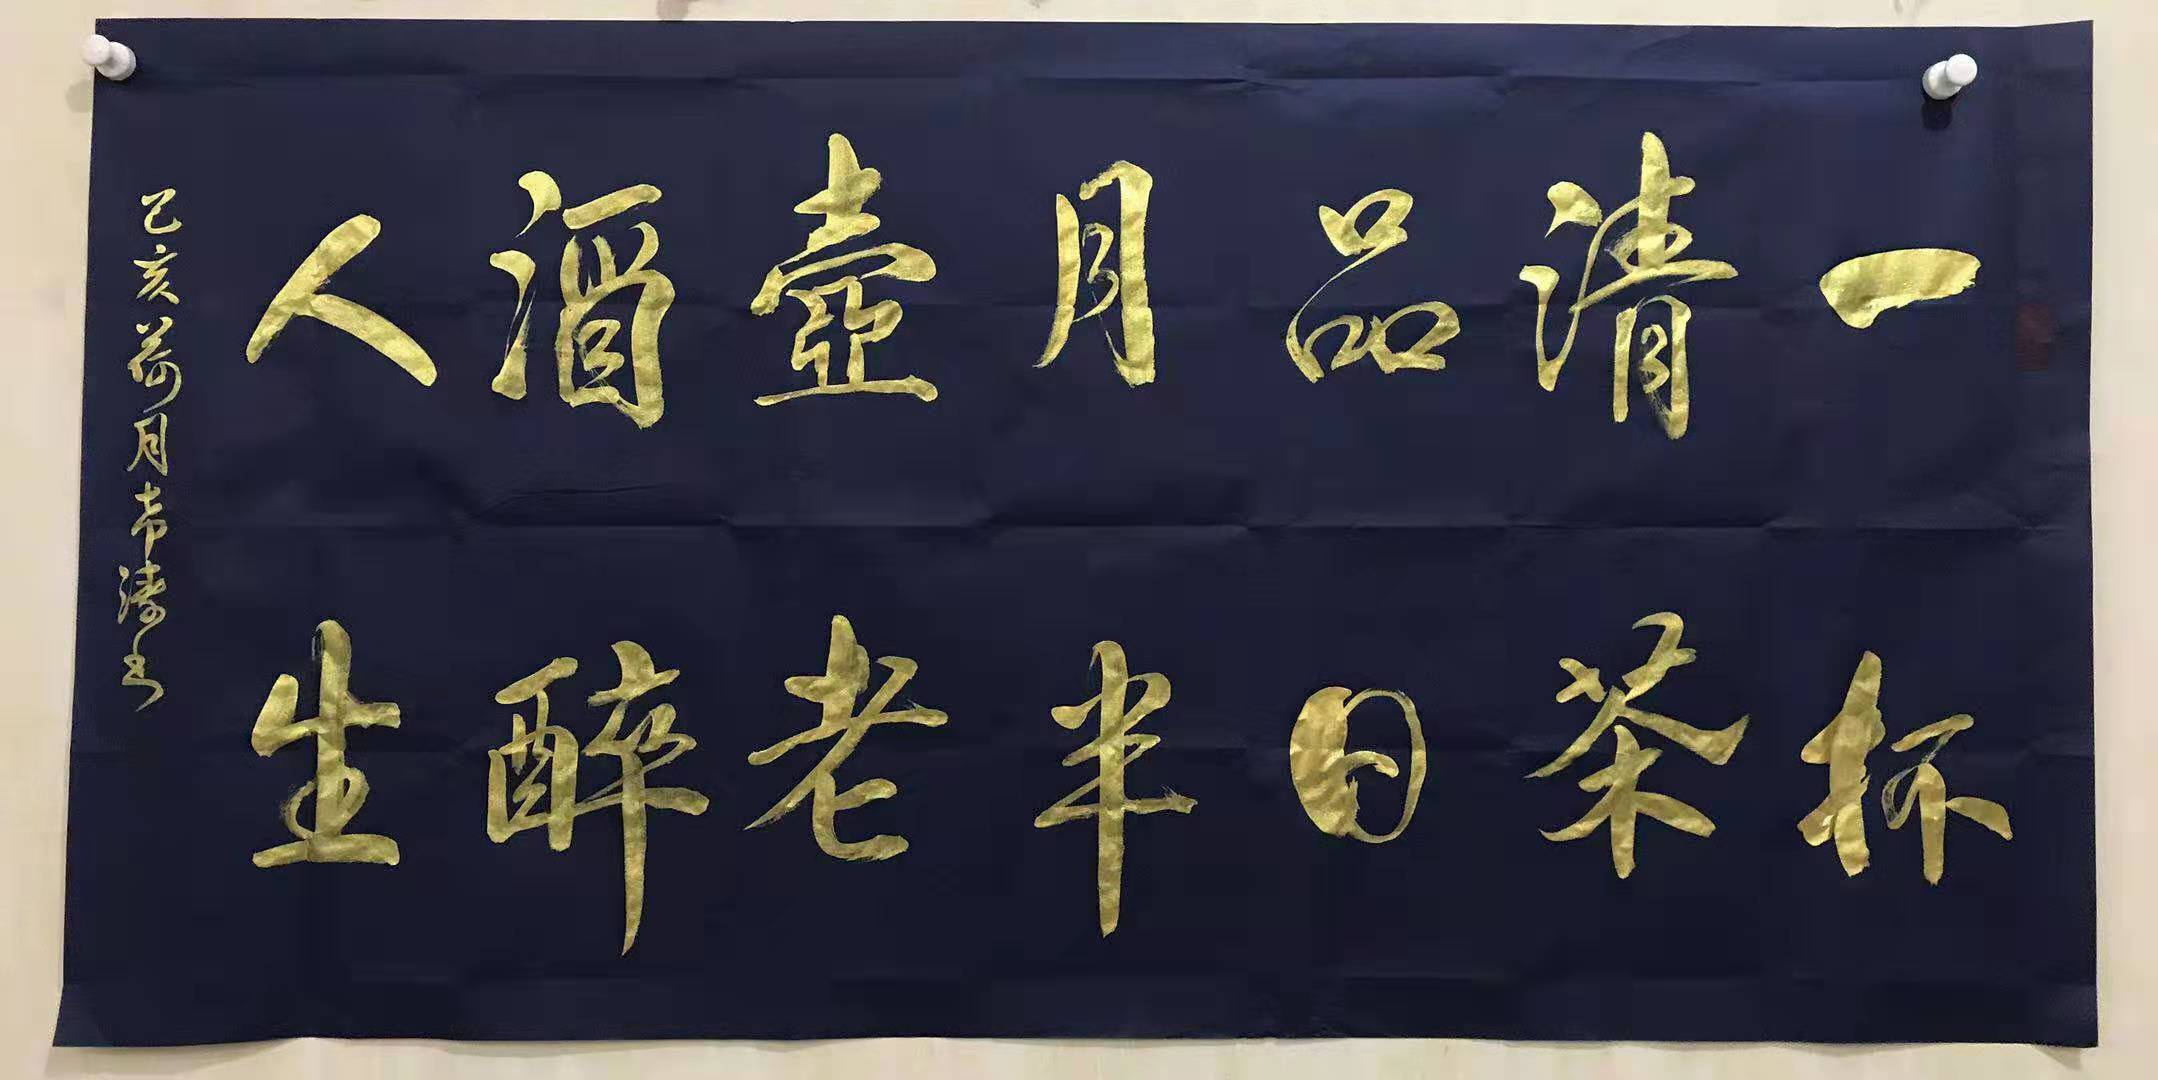 一杯
清茶
品日
月半
壺老
酒醉
人生
己亥荷月濤书